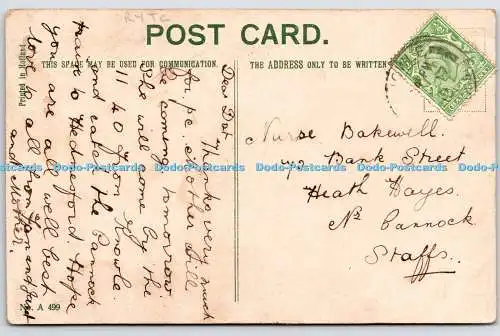 R4TC
POST CARD.
THIS SPACE MAY BE USED FOR COMMUNICATION.
THE ADDRESS ONLY TO BE WRITTEN
Printed in Holland
Dear Dot
Thanks very much
for p.c. Mother still
be coming tomorrow.
She will come by the
11 40 from Knowle
and catch the Cannock
train to Hednesford. Hope
you are all well best
love to all from
and Mother.
Nurse Bakewell.
Bank Street
Heath Hayes.
Nr Cannock
Staffs.
A 499
Dodo-Postcards Dodo-Postcards Dodo-Postcards Dodo-Postcards Dodo-Postcards